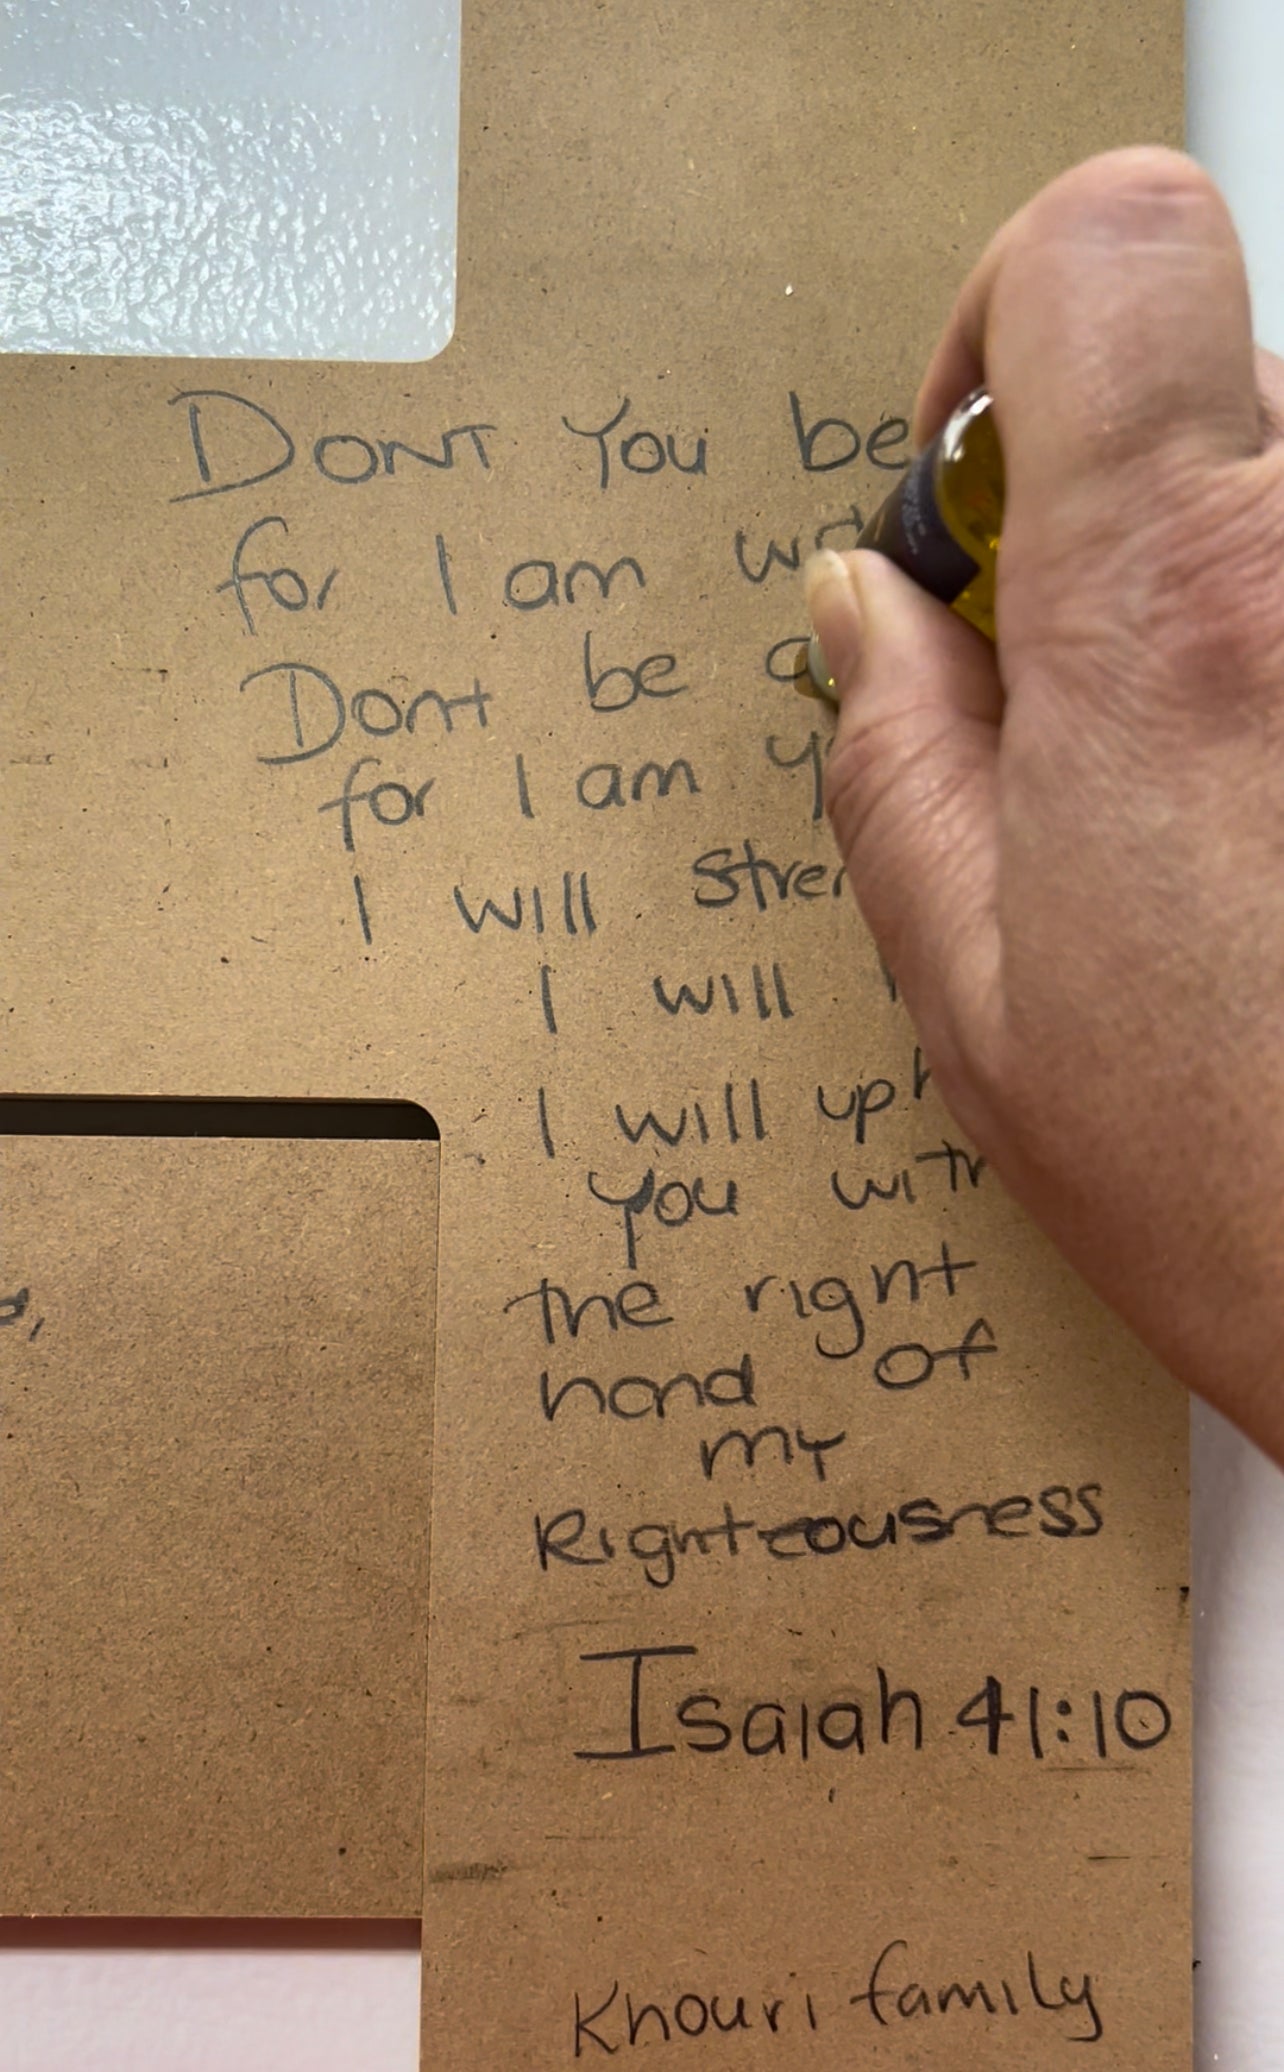 DONT You be
for I am
Dont be
for I am
I will
I will
I will
you with
the right
hand of
my
Righteousness
Isaiah 41:10
Khouri family